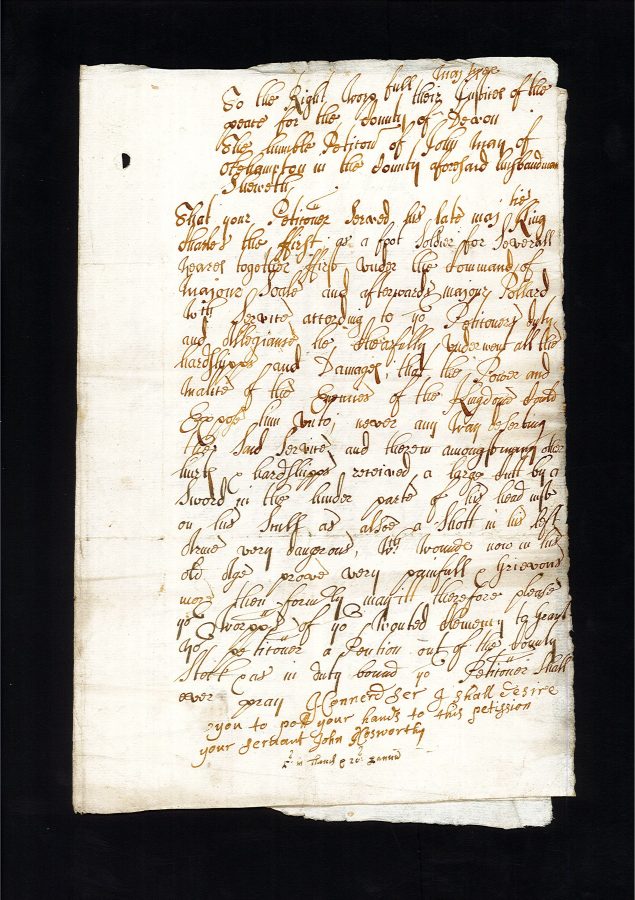 To the Right Worpfull his Majties
Justices of the
peace for the County of Devon
The humble Peticon of John May of
Okehampton in the County aforesaid husbandman
Sheweth
That your Petitioner Served his late majties King
Charles the ffirst as a foot Soldier for Severall
yeares together ffirst under the Command of
Majour and afterwards majour Pollard
wch Service according to yor Petitioners duty
and Allegiance he chearfully underwent all the
hardshipps and Damages, that the Power and
Malice of the Enymies of the Kingdome Could
Expose him unto, never any way deserting
the Said Service and therein amongst many other
hurts & hardshipps received a large Cutt by a
Sword in the hinder parte of his head
on his Scull as alsoe a Shott in his left
Arme very dangerous, wch wounds now in his
old Age prove very painfull & Grievous
more then formerly may itt therefore please
yor worpps of yor wonted Clemency to grant
yor petitioner a Pention out of the County
Stock & as in duty bound yor Petitioner Shall
ever pray Sir I shall desire
you to pott your hands to this petission
your serdant John